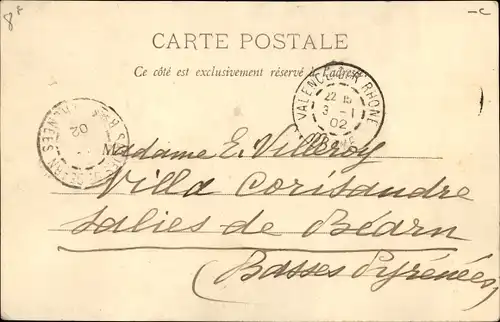 8F
-c
CARTE POSTALE
Ce côté est exclusivement réservé à l'adresse
VALENCE-SUR-RHONE
22 15
3 - 1
02
DROME
02
Madame E. Villeroy
Villa Corisandre
Salies de Béarn
(Basses Pyrénées)